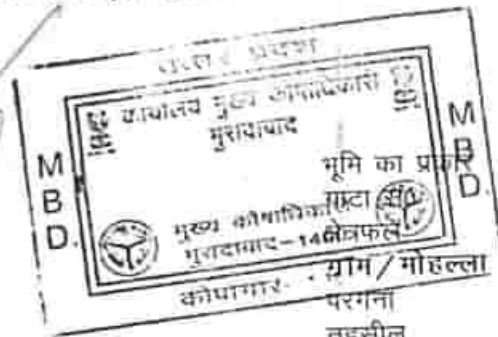 उत्तर प्रदेश
कार्यालय मुख्य कोषाधिकारी
मुरादाबाद
M
B
D.
M
B
D.
मुख्य कोषाधिकारी
मुरादाबाद-14
कोषागार
भूमि का प्रकार
गाटा सं
क्षेत्रफल
ग्राम/मोहल्ला
परगना
तहसील